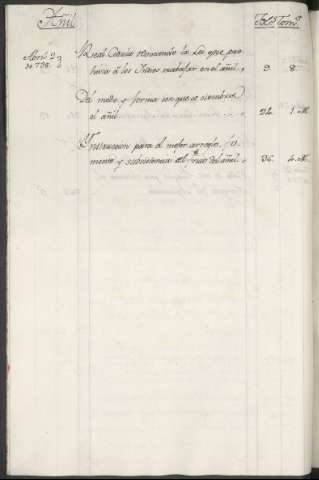 Añil Fol.s Tom.s
Abril 23 Real Cedula revocando la Ley que pro-
de 738. hivia á los Indios trabajar en el añil. 9. 8.
Del modo y forma con que se siembra
el añil. 92. 1. M.
Instruccion para el mejor arreglo, fo-
mento y subsistencia del fruto del añil. 96. 4. M.